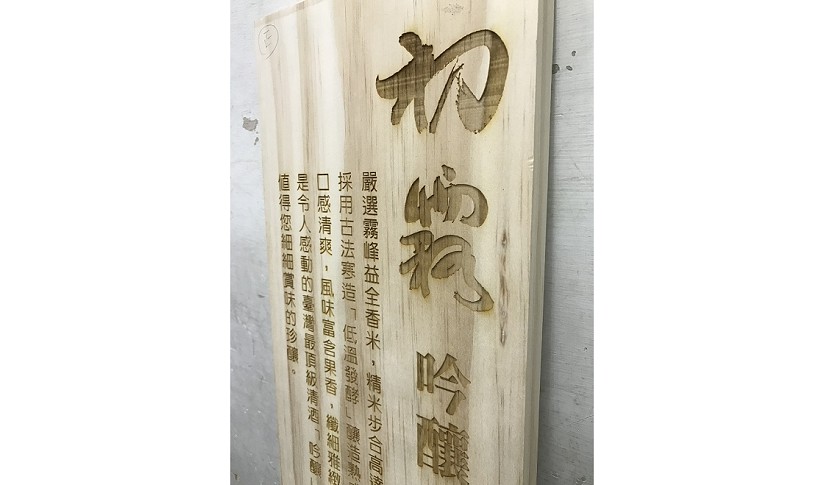 初霧 吟釀
嚴選霧峰益全香米，精米步合高達
採用古法寒造「低溫發酵」釀造熟
口感清爽，風味富含果香，纖細雅緻
是令人感動的臺灣最頂級清酒「吟釀」
值得您細細賞味的珍釀。